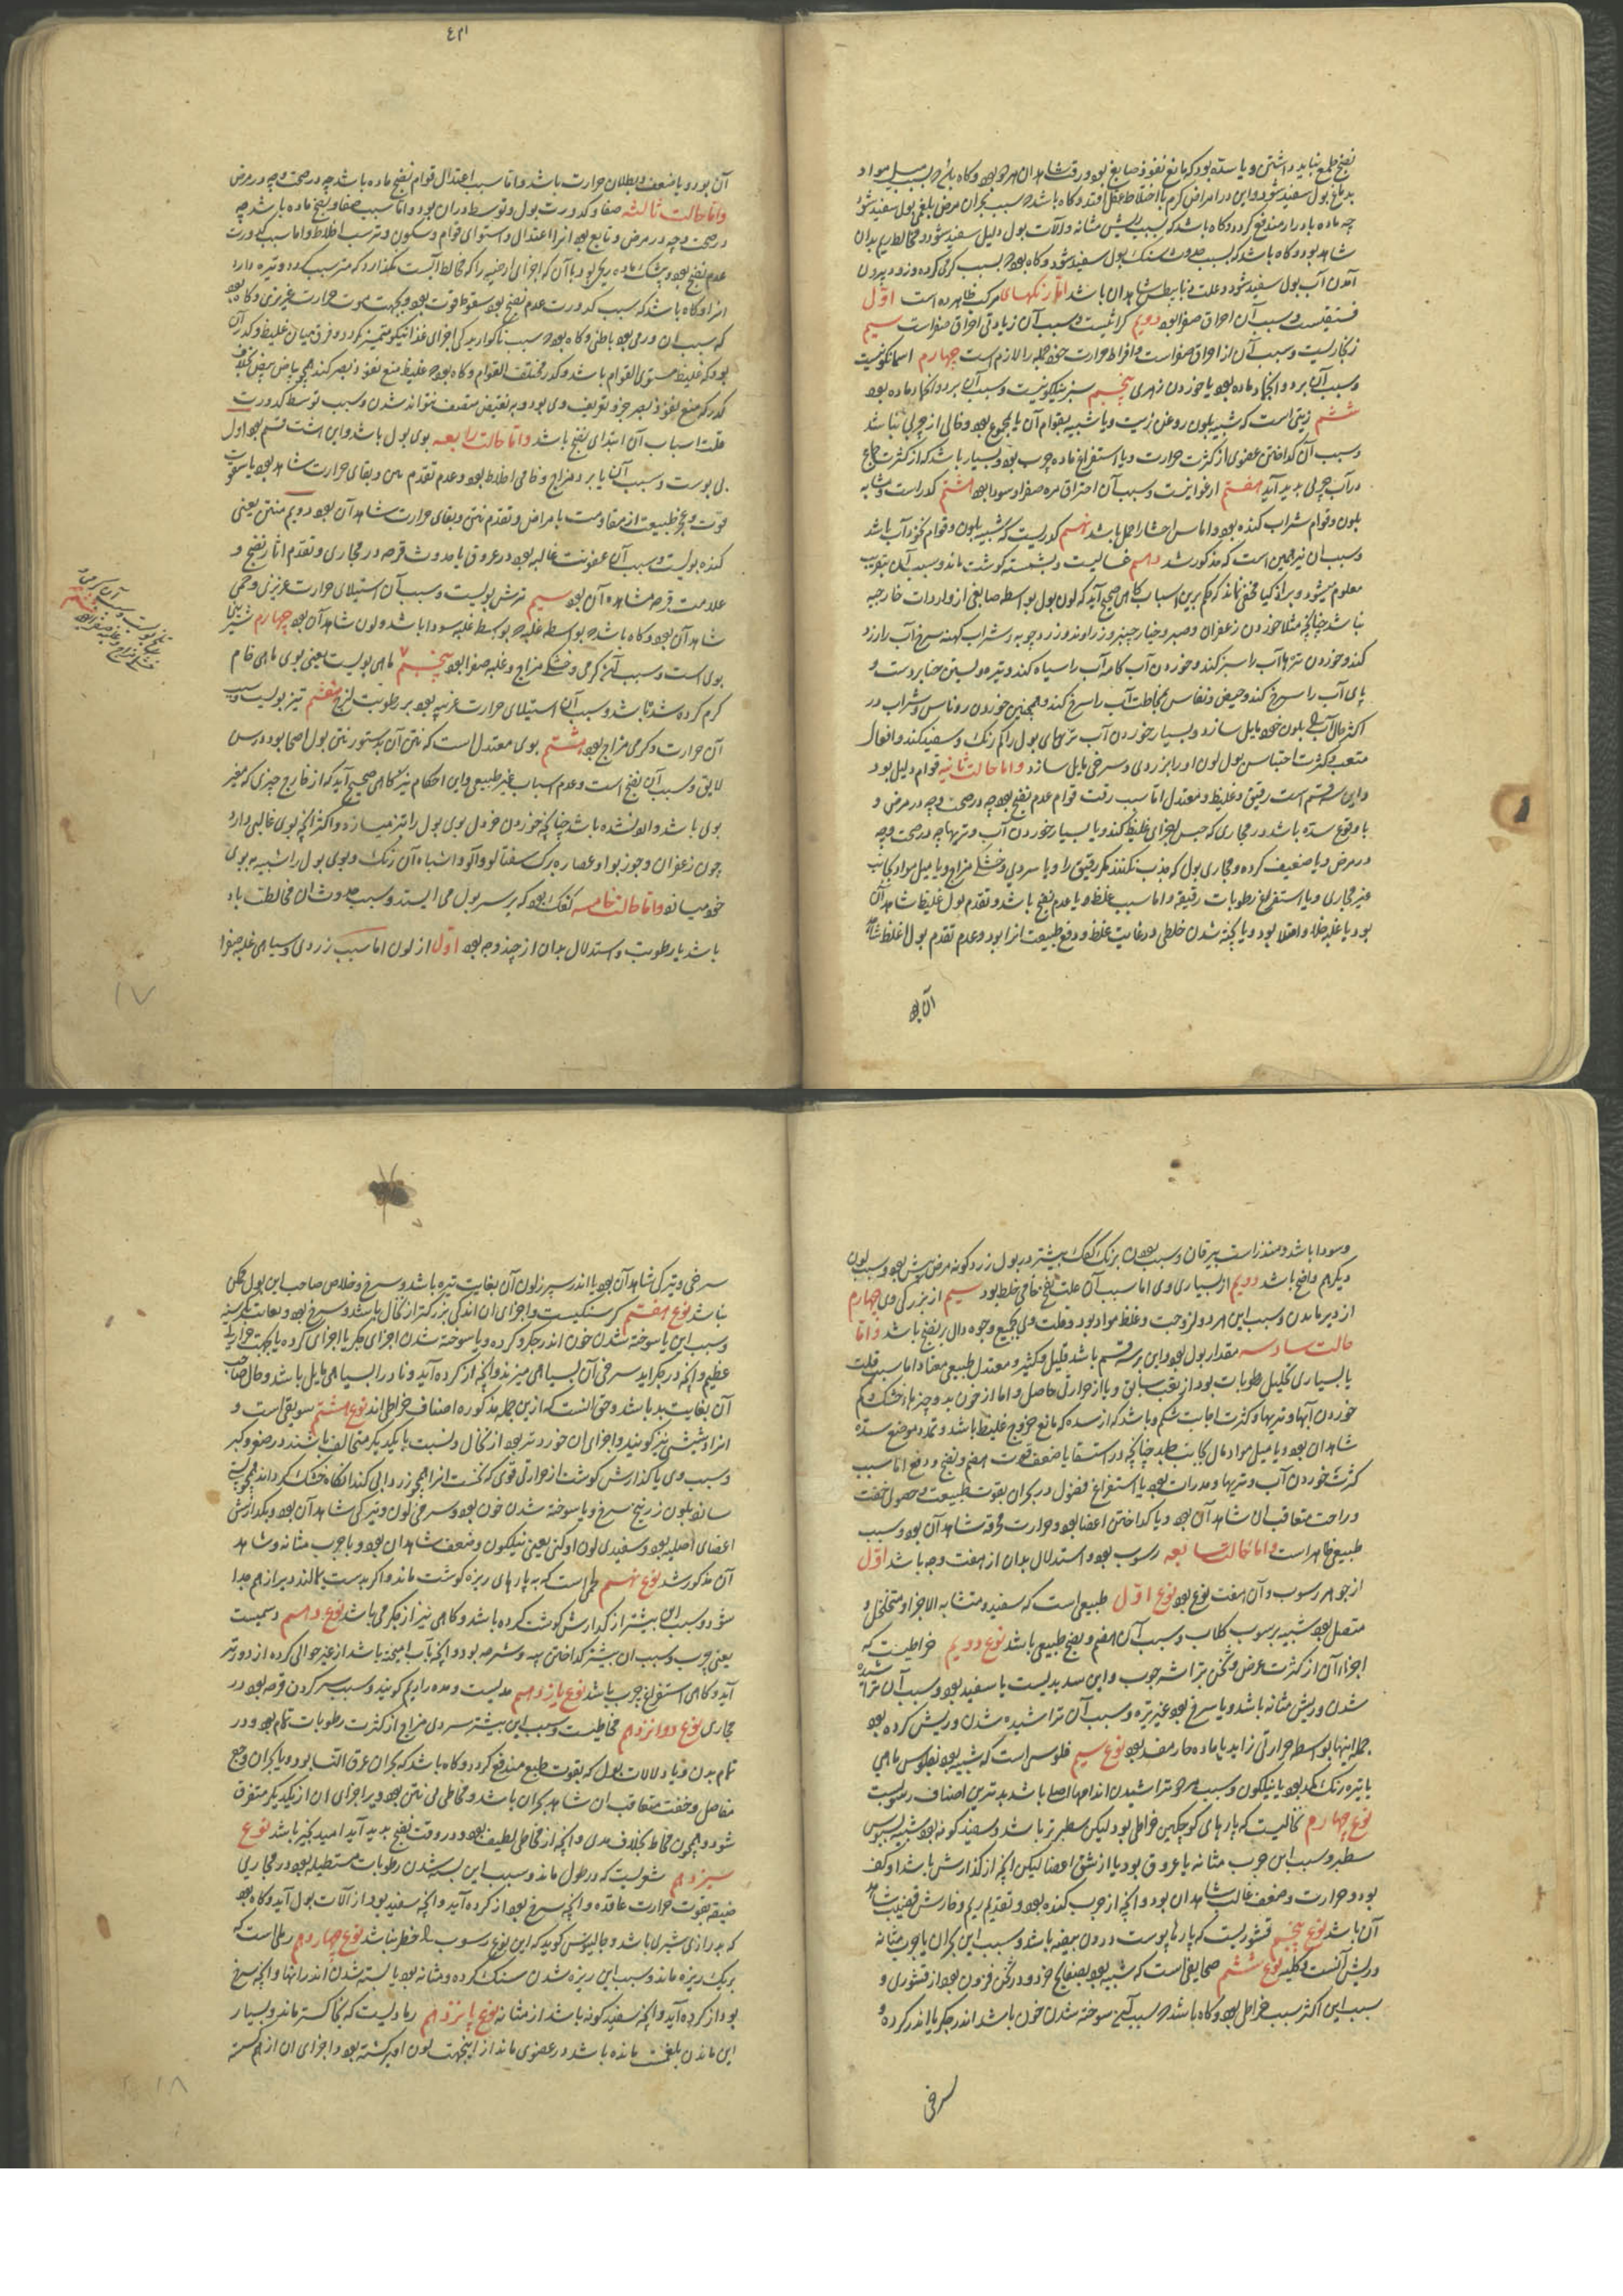 نضج طمع نباید داشتن و یا سده بود که مانع نفوذ صابغ بود و رقت شاهد آن بود و گاه باشد بسبب میل مواد
بدماغ بول سفید شود و این در امراض گرم با اختلاط عقل افتد و گاه باشد بسبب بحران مرض بلغمی بول سفید شود
چه ماده بادرار مندفع گردد و گاه باشد که بسبب ریش مثانه و آلات بول دلیل سفید شود و مخالطه ریم بدان
شاهد بود و گاه باشد که بسبب حدوث سنگ بول سفید شود و گاه بود بسبب گرمی گرده و زود بیرون
آمدن آب بول سفید شود و علت ذیابیطس شاهد آن باشد اما رنگهای مرکب ظاهر ده است اول
فستقیست و سبب آن احراق صفرا بود دویم کراثیست و سبب آن زیادتی احراق صفراست سیم
زنجاریست و سبب آن از احراق صفراست و افراط حرارت جمله را لازم است چهارم اسمانگونیست
و سبب آن برد و انجماد ماده بود یا خوردن زهری پنجم سبز نیلگونیست و سبب آن برد و انجماد ماده بود
ششم زیتی است که شبیه بلون روغن زیت و یا شبیه بقوام آن یا بمجموع بود و خالی از چربی نباشد
و سبب آن گداختن عضوی از کثرت حرارت و یا استفراغ ماده چرب بود و بسیار باشد که از کثرت جماع
در آب چربی پدید آید هفتم ارغوانیست و سبب آن احتراق مره صفرا و سودا بود هشتم کدر است و مشابه
بلون و قوام شراب کنده بود و اماس احشا را حمل باشد نهم کدریست که شبیه بلون و قوام نخود آب باشد
و سبب آن نیز همین است که مذکور شد دهم غسالیست و بشسته گوشت ماند و سبب آن بتقریب
معلوم میشود و بر اذکیا مخفی نماند که حکم برین اسباب گاهی صحیح آید که لون بول بواسطه صابغی از واردات خارجیه
نباشد چنانچه مثلا خوردن زعفران و صبر و خیار چنبر و زراوند و زردچوبه و شراب کهنه سرخ آب را زرد
کند و خوردن تره‌ها آب را سبز کند و خوردن آب کامه آب را سیاه کند و تیره و بستن حنا بر دست و
پای آب را سرخ کند و حیض و نفاس بمخالطت آب را سرخ کند و همچنین خوردن روناس و شراب در
اکثر حال آب را بلون خود مایل سازد و بسیار خوردن آب تریهای بول را کم رنگ و سفید کند و افعال
متعب و کثرت احتباس بول لون او را بزردی و سرخی مایل سازد و اما حالت ثانیه قوام دلیل بود
و این سه قسم است رقیق و غلیظ و معتدل اما سبب رقت قوام عدم نضج بود چه در صحت و چه در مرض و
یا وقوع سده باشد در مجاری که حبس اجزای غلیظ کند و یا بسیار خوردن آب و تریها چه در صحت و چه
در مرض و یا ضعیف گرده و مجاری بول که جذب نکنند مگر رقیق را و یا سردی و خشکی مزاج و یا میل مواد بجانب
غیر مجاری و یا استفراغ رطوبات رقیقه و اما سبب غلظ و یا عدم نضج باشد و تقدم بول غلیظ شاهد آن
بود یا غلبه خلط و امتلا بود و یا پخته شدن خلطی در غایت غلظ و دفع طبیعت آنرا بود و عدم تقدم بول غلیظ شاهد
آن بود
۴۳۱
آن بود و یا ضعف و بطلان حرارت باشد و اما سبب اعتدال قوام نضج ماده باشد چه در صحت و چه در مرض
و اما حالت ثالثه صفا و کدورت بول و توسط در آن بود و اما سبب صفا و نضج ماده باشد چه
در صحت و چه در مرض و تابع بود آنرا اعتدال و استوای قوام و سکون و ترسب اخلاط و اما سبب کدورت
عدم نضج بود و بیشک ماده ریحی بود با آن که اجزای ارضیه را که مخالط آبست نگذارد که مترسب گردد و تیره دارد
آنرا و گاه باشد که سبب کدورت عدم نضج بود سقوط قوت بود و بجهت موت حرارت غریزی و گاه بود
که سبب آن ورمی بود باطنی و گاه بود سبب ناگواریدگی اجزای غذا نیکو متمیز نگردد و فرق میان غلیظ و کدر آن
بود که غلیظ مستوی القوام باشد و کدر مختلف القوام و گاه بود غلیظ منع نفوذ بصر کند همچو بیاض بیض بخلاف
کدر که منع نفوذ بصر جزو تعریف وی بود و به نقیض متصف نتواند شدن و سبب توسط کدورت
قلت اسباب آن ابتدای نضج باشد و اما حالت رابعه بوی بول باشد و این هشت قسم بود اول
بی بویست و سبب آن یا برد مزاج و خامی اخلاط بود و عدم تقدم نتن و بقای حرارت شاهد بود یا سقوط
قوت و عجز طبیعت از مقاومت با مراض و تقدم نتن و بقای حرارت شاهد آن بود دویم منتن یعنی
گنده بولیست و سبب آن عفونت غالبه بود در عروق یا حدوث قرحه در مجاری و تقدم آثار نضج و
علامت قرحه مشاهد آن بود سیم ترش بولیست و سبب آن استیلای حرارت غریزی و حمی
شاهد آن بود و گاه باشد بواسطه غلبه بواسطه غلبه سودا باشد و لون شاهد آن بود چهارم شیرین
بوی است و سبب آن گرمی و خشکی مزاج و غلبه صفرا بود پنجم ماهی بولیست یعنی بوی ماهی خام
گرم کرده شده باشد و سبب آن استیلای حرارت غریبه بود بر رطوبت لزج هفتم تیز بولیست و سبب
آن حرارت و گرمی مزاج بود هشتم بوی معتدل است که نتن آن بدستور نتن بول اصحا بود و رس
لایق و سبب آن نضج است و عدم اسباب غیر طبیعی و این احکام نیز گاهی صحیح آید که از خارج چیزی که مغیر
بوی باشد وارد نشده باشد چنانچه خوردن خردل بوی بول را تیز میسازد و اکثر آنچه بوی غالبی دارد
چون زعفران و جوز بوا و عصاره برگ سفتالو و آلو و اشباه آن رنگ و بوی بول را شبیه ببوی
خود میسازد و اما حالت خامسه کفک بود که بر سر بول می ایستد و سبب حدوث آن مخالطت باد
باشد با رطوبت و استدلال بدان از چند وجه بود اول از لون اما سبب زردی و سیاهی غلبه صفرا
۱۷
و سودا باشد و منذر است بیرقان و سبب بودن برنگ کفک بیشتر در بول زرد گونه مرض شش بود و سبب لون
دیگر هم واضح باشد دویم از بسیاری وی اما سبب آن علت نفخ خامی خلط بود سیم از بزرگی وی چهارم
از دیر ماندن و سبب این هر دو لزوجت و غلظ مواد بود و قلت وی بجمیع وجوه دال بر نضج باشد و اما
حالت سادسه مقدار بول بود و این بر سه قسم باشد قلیل و کثیر و معتدل طبیعی معتاد اما سبب قلت
یا بسیاری تحلیل رطوبات بود از تعب سابق و یا از حرارت حاصل و اما از خون بد و چیزها خشک و کم
خوردن آبها و تریها و کثرت اجابت شکم و باشد که از سده که مانع خروج غلیظ باشد و تمدد موضع سده
شاهد آن بود و یا میل مواد مال بجانب جلد چنانچه در استسقا یا ضعف قوت هضم و نضج و دفع اما سبب
کثرت خوردن آب و تریها و مدرات بود یا استفراغ فضول در بحران بقوت طبیعت و حصول خفت
و راحت متعاقب آن شاهد آن بود و یا گداختن اعضا بود و حرارت محرقه شاهد آن بود و سبب
طبیعی ظاهر است و اما حالت سابعه رسوب بود و استدلال بدان از هفت وجه باشد اول
از جوهر رسوب و آن هفت نوع بود نوع اول طبیعی است که سفید و متشابه الاجزا و متخلخل و
متصل بود شبیه برسوب گلاب و سبب آن هضم و نضج طبیعی باشد نوع دویم خراطیست که
اجزاء آن از کثرت عرض و ثخن بتراشه چوب و این سدیدیست یا سفید بود و سبب آن تراشیده
شدن و ریش مثانه باشد و یا سرخ بود غیر تیره و سبب آن تراشیده شدن و ریش گرده بود
جمله اینها بواسطه حرارتی زاید یا ماده حار مفسد بود نوع سیم فلوسی است که شبیه بود بفلوس ماهی
یا تیره رنگ کمد بود یا نیلگون و سبب هر دو تراشیدن اندامها اصلی باشد بدترین اصناف رسوبست
نوع چهارم نخالیست که پارهای کوچکین خراطی بود لیکن سطبرتر باشد و سفید گونه بود شبیه بسبوس
سطبر و سبب این جرب مثانه یا عروق بود یا از شق اعضا لیکن آنچه از گدازش باشد او کف
بود و حرارت و ضعف غالب شاهد آن بود و آنچه از جرب گنده بود و تقدیم ریم و خارش قضیب شاهد
آن باشد نوع پنجم قشوریست که پارها پوست درون بیضه باشد و سبب این بحران یا جرب مثانه
و ریش آنست و کلیه نوع ششم صحایفی است که شبیه بود بصفایح خرد و در ثخن فزون بود از قشوری و
سبب این اکثر سبب خراطی بود و گاه باشد بسبب آن سوخته شدن خون باشد اندر جگر یا اندر گرده و
سرخی
سرخی و تیرگی شاهد آن بود یا اندر سپرز لون آن بغایت تیره باشد و سرخ و خلاص صاحب این بول ممکن
نباشد نوع هفتم کرسنگیست و اجزای آن اندکی بزرگتر از نخال باشد و سرخ بود و بغایت کرسنه
و سبب این یا سوخته شدن خون اندر جگر و گرده و یا سوخته شدن اجزای جگر یا اجزای گرده یا بجهت حرارت
عظیم و آنچه در جگر اید سرخی آن بسیاهی میزند و آنچه از گرده آید و نادرا بسیاهی مایل باشد و حال صاحب
آن بغایت بد باشد و حق آنست که ازین جمله مذکوره اصناف خراطی اند نوع هشتم سویقی است و
آنرا دشیشی نیز گویند و اجزای آن خوردتر بود از نخال و نسبت با یکدیگر متخالف باشند در صغر و کبر
و سبب وی یا گدازش گوشت از حرارتی قوی که نخست آنرا همچو زرداب کند آنگاه خشک گرداند همچو پست
سائده بلون زرنیخ سرخ و یا سوخته شدن خون بود و سرخی لون و تیرگی شاهد آن بود و یا گدازش
اعضای اصلیه بود و سفیدی لون او کنی یعنی نیلگون و ضعف شاهد آن بود و یا جرب مثانه و شاهد
آن مذکور شد نوع نهم لحمی است که به پارهای ریزه گوشت ماند و اگر بدست بمالند دیر از هم جدا
شود و سبب این بیشتر از گدازش گوشت گرده باشد و گاهی نیز از جگر می باشد نوع دهم دسمیست
یعنی چرب و سبب آن بیشتر گداختن پیه و شرحه بود و آنچه بآب امیخته باشد از غیر حوالی گرده از دورتر
آید و گاهی استفراغ چرب باشد نوع یازدهم مدیست و مده را ریم گویند و سبب سر کردن قرحه بود در
مجاری نوع دوازدهم مخاطیست و سبب این بیشتر سردی مزاج از کثرت رطوبات خام بود و در
تمام بدن و یا در آلات بول که بقوت طبع مندفع گردد و گاه باشد که بحران عرق النسا بود و یا بحران وجع
مفاصل و خفت متعاقب آن شاهد بحران باشد و مخاطی بی نتن بود و دیر اجزای آن از یکدیگر متفرق
شود و همچون مخاط بخلاف مدی و آنچه از مخاطی لطیف بود و در وقت نضج پدید آید امید بخیر باشد نوع
سیزدهم شعریست که در طول ماند و سبب این بسته شدن رطوبات مستطیله بود در مجاری
ضیقه بقوت حرارت عاقده و آنچه سرخ بود از گرده آید و آنچه سفید بود از آلات بول آید و گاه بود
که بدرازی شبری باشد و جالینوس گوید که این نوع رسوب را خطر نباشد نوع چهاردهم رملی است که
بریگ ریزه ماند و سبب این ریزه شدن سنگ گرده و مثانه بود یا بسته شدن اندر آنها و آنچه سرخ
بود از گرده آید و آنچه سفید گونه باشد از مثانه نوع پانزدهم رمادیست که بخاکستر ماند و بسیار
این ماندن بلغمست مانده باشد در عضوی ماند از اینجهت لون او برگشته بود و اجزای آن از هم گسسته
۱۸